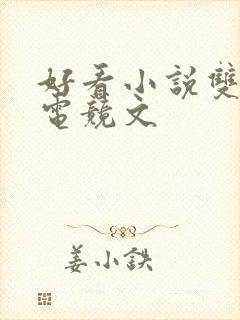 好看小說雙
電競文
姜小鉄